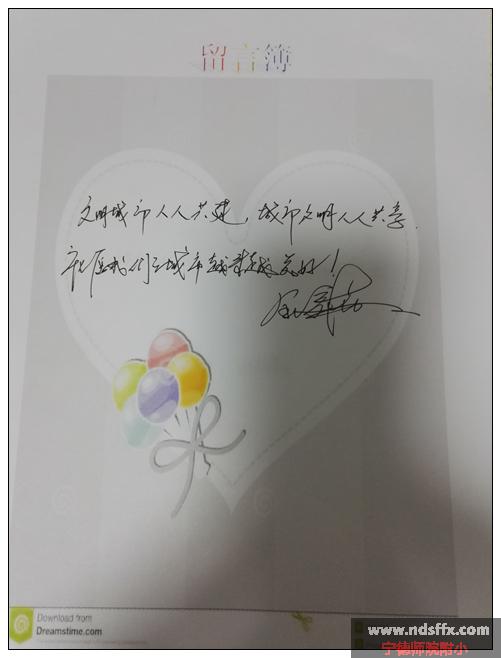 留言簿
文明城市人人共建,城市文明人人共享.
祝愿我们的城市越来越美好!
Download from
Dreamstime.com
www.ndsffx.com
宁德师院附小